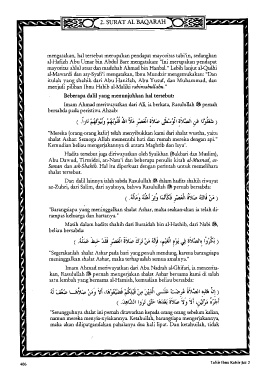 2. SURAT AL BAQARAH
mengatakan, hal tersebut merupakan pendapat mayoritas tabi'in, sedangkan
al-Hafizh Abu Umar bin Abdul Barr mengatakan "Ini merupakan pendapat
mayoritas ahlul atsar dan madzhab Ahmad bin Hanbal." Lebih lanjut al-Qadhi
al-Mawardi dan asy-Syafi'i mengatakan, Ibnu Mundzir mengemukakan: "Dan
itulah yang shahih dari Abu Hanifah, Abu Yusuf, dan Muhammad, dan
menjadi pilihan Ibnu Habib al-Maliki rahimahullahu."
Beberapa dalil yang menunjukkan hal tersebut:
Imam Ahmad meriwayatkan dari Ali, ia berkata, Rasulullah ﷺ pernah
bersabda pada peristiwa Ahzab:
"Mereka (orang-orang kafir) telah menyibukkan kami dari shalat wustha, yaitu
shalat Ashar. Semoga Allah memenuhi hati dan rumah mereka dengan api."
Kemudian beliau mengerjakannya di antara Maghrib dan Isya'.
Hadits tersebut juga diriwayatkan oleh Syaikhan (Bukhari dan Muslim),
Abu Dawud, Tirmidzi, an-Nasa'i dan beberapa penulis kitab al-Musnad, as-
Sunan dan ash-Shahih. Hal itu diperkuat dengan perintah untuk memelihara
shalat tersebut.
Dan dalil lainnya ialah sabda Rasulullah ﷺ dalam hadits shahih riwayat
az-Zuhri, dari Salim, dari ayahnya, bahwa Rasulullah ﷺ pernah bersabda:
"Barangsiapa yang meninggalkan shalat Ashar, maka seakan-akan ia telah di-
rampas keluarga dan hartanya."
Masih dalam hadits shahih dari Buraidah bin al-Hashib, dari Nabi ﷺ,
beliau bersabda:
"Segerakanlah shalat Ashar pada hari yang penuh mendung, karena barangsiapa
meninggalkan shalat Ashar, maka terhapuslah semua amalnya."
Imam Ahmad meriwayatkan dari Abu Nadrah al-Ghifari, ia mencerita-
kan, Rasulullah ﷺ pernah mengerjakan shalat Ashar bersama kami di salah
satu lembah yang bernama al-Hamish, kemudian beliau bersabda:
"Sesungguhnya shalat ini pernah diwajibkan kepada orang-orang sebelum kalian,
namun mereka menyia-nyiakannya. Ketahuilah, barangsiapa mengerjakannya,
maka akan dilipatgandakan pahalanya dua kali lipat. Dan ketahuilah, tidak
486
Tafsir Ibnu Katsir Juz 2